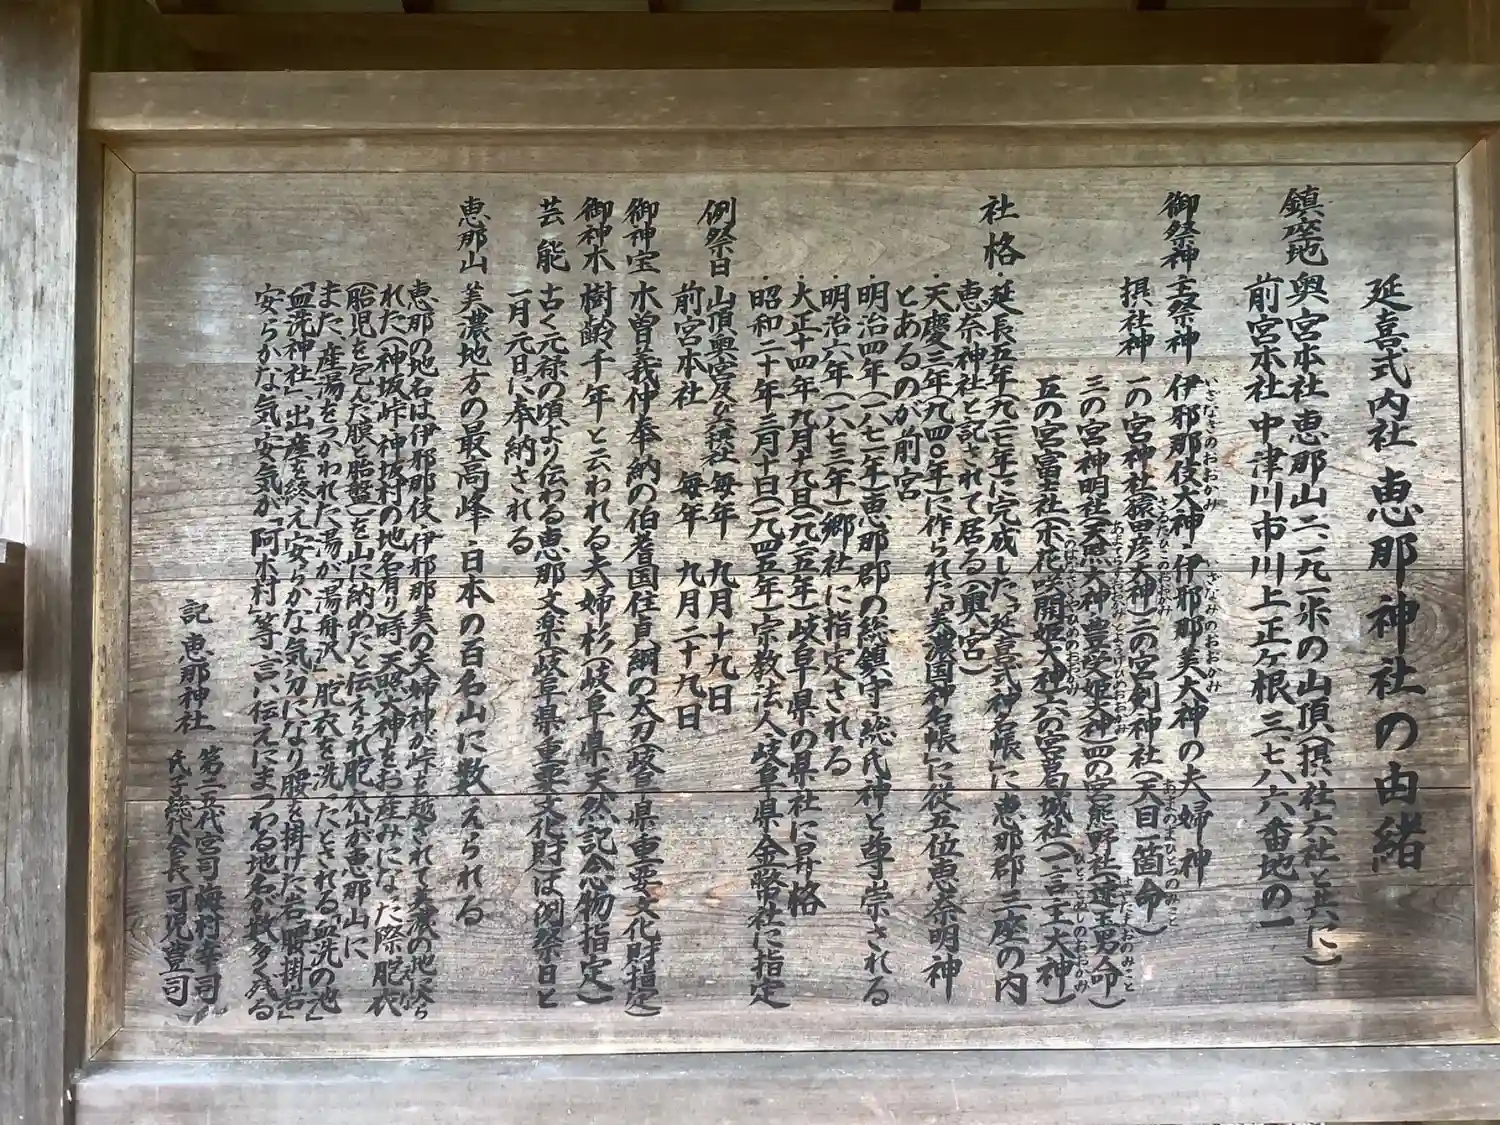 延喜式内社 恵那神社の由緒
鎮座地 奥宮本社 恵那山二、一九一米の山頂(摂社六社と共に)
前宮本社 中津川市川上正ヶ根三、七八六番地の一
御祭神 主祭神 伊邪那伎大神・伊邪那美大神の夫婦神
いざなきのおおかみ いざなみのおおかみ
摂社神 一の宮神社(猿田彦大神)二の宮剣神社(天目一箇命)
さるたひこのおおかみ あまのまひとつのみこと
三の宮神明社(天照大神・豊受姫大神)四の宮熊野社(速玉男命)
はやたまおのみこと
五の宮富士社(木花咲開姫大神)六の宮葛城社(一言主大神)
このはなさくやひめのおおかみ ひとことぬしのおおかみ
社格 ・延長五年(九二七年)に完成した「延喜式神名帳」に恵那郡三座の内
恵奈神社と記されて居る(奥宮)
・天慶三年(九四〇年)に作られた「美濃国神名帳」に従五位恵奈明神
とあるのが前宮
・明治四年(一八七一年)恵那郡の総鎮守・総氏神と尊崇される
・明治六年(一八七三年)郷社に指定される
・大正十四年九月十九日(一九二五年)岐阜県の県社に昇格
・昭和二十年三月十日(一九四五年)宗教法人岐阜県金幣社に指定
例祭日 山頂奥宮及び摂社 毎年 九月十九日
前宮本社 毎年 九月二十九日
御神宝 木曽義仲奉納の伯耆国住真綱の太刀(岐阜県重要文化財指定)
御神木 樹齢千年と云われる夫婦杉(岐阜県天然記念物指定)
芸能 古く元禄の頃より伝わる恵那文楽(岐阜県重要文化財)は例祭日と
一月元日に奉納される
恵那山 美濃地方の最高峰・日本の百名山に数えられる
恵那の地名は伊邪那伎・伊邪那美の夫婦神が峠を越されて美濃の地に降ら
れた(神坂峠・神坂村の地名有り)時、天照大神をお産みになった際、胞衣
(胎児を包んだ膜と胎盤)を山に納めたと伝えられ胞衣山が恵那山に
また、産湯をつかわれた湯が「湯舟沢」胞衣を洗ったとされる「血洗の池」
「血洗神社」、出産を終え安らかな気分になり腰を掛けた岩「腰掛岩」
安らかな気(安気)が「阿木村」等、言い伝えにまつわる地名が数多く残る
記 恵那神社 第二五代宮司
氏子総代会長 可児豊司